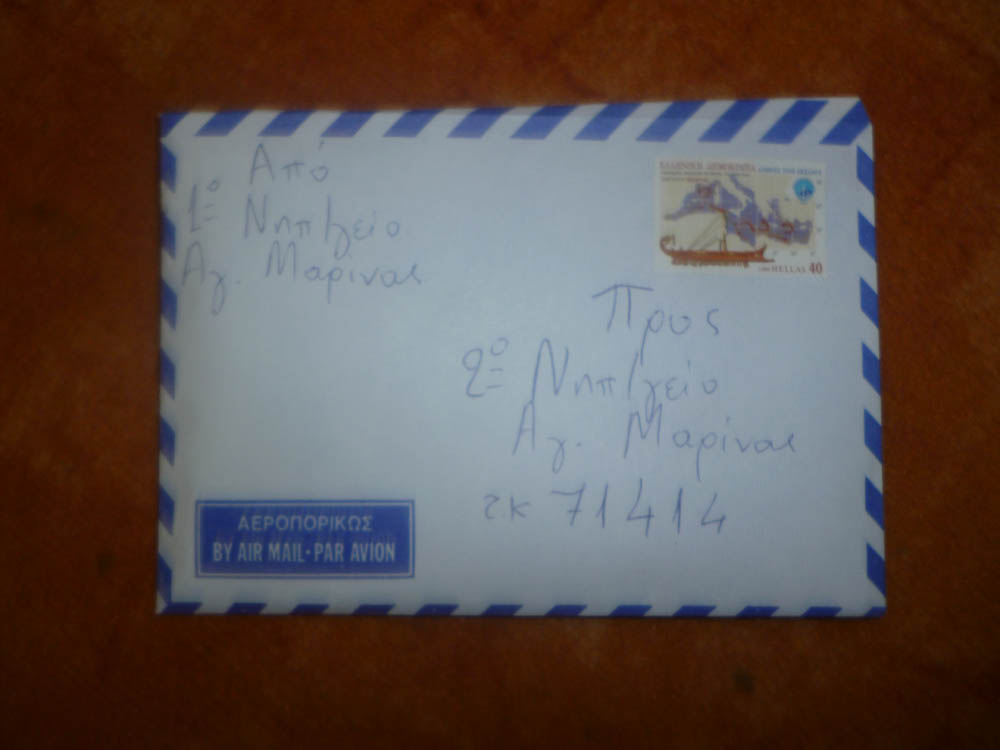 Από
1ο Νηπ/γείο
Αγ. Μαρίνας
ΕΛΛΗΝΙΚΗ ΔΗΜΟΚΡΑΤΙΑ
HELLAS 40
Προς
2ο Νηπ/γείο
Αγ. Μαρίνας
τκ 71414
ΑΕΡΟΠΟΡΙΚΩΣ
BY AIR MAIL·PAR AVION